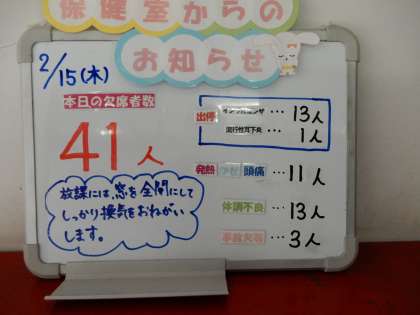 保健室からの
お知らせ
2/15(木)
本日の欠席者数
41人
出停
インフルエンザ…13人
流行性耳下炎…1人
発熱 頭痛…11人
体調不良…13人
事故欠等…3人
放課には、窓を全開にして
しっかり換気をおねがい
します。